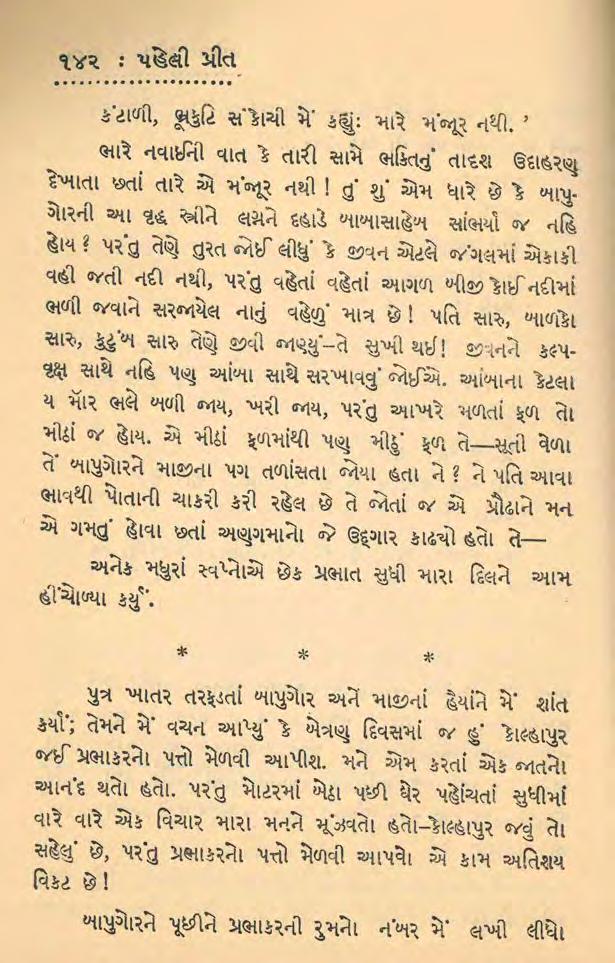 ૧૪૨ : પહેલી પ્રીત
કંટાળી, ભ્રૂકુટિ સંકોચી મેં કહ્યુંઃ મારે મંજૂર નથી. ’
ભારે નવાઈની વાત કે તારી સામે ભક્તિનું તાદશ ઉદાહરણ
દેખાતા છતાં તારે એ મંજૂર નથી ! તું શું એમ ધારે છે કે બાપુ-
ગોરની આ વૃદ્ધ સ્ત્રીને લગ્નને દહાડે બાબાસાહેબ સાંભર્યા જ નહિ
હોય ? પરંતુ તેણે તુરત જોઈ લીધું કે જીવન એટલે જંગલમાં એકાકી
વહી જતી નદી નથી, પરંતુ વહેતાં વહેતાં આગળ બીજી કોઈ નદીમાં
ભળી જવાને સરજાયેલ નાનું વહેળું માત્ર છે ! પતિ સારુ, બાળકો
સારુ, કુટુંબ સારુ તેણે જીવી જાણ્યું–તે સુખી થઈ! જીવનને કલ્પ-
વૃક્ષ સાથે નહિ પણ આંબા સાથે સરખાવવું જોઈએ. આંબાના કેટલા
ય મૉર ભલે બળી જાય, ખરી જાય, પરંતુ આખરે મળતાં ફળ તો
મીઠાં જ હોય. એ મીઠાં ફળમાંથી પણ મીઠું ફળ તે—સૂતી વેળા
તેં બાપુગોરને માજીના પગ તળાંસતા જોયા હતા ને ? ને પતિ આવા
ભાવથી પોતાની ચાકરી કરી રહેલ છે તે જોતાં જ એ પ્રૌઢાને મન
એ ગમતું હોવા છતાં અણગમાનો જે ઉદ્દગાર કાઢ્યો હતો તે—
અનેક મધુરાં સ્વપ્નોએ છેક પ્રભાત સુધી મારા દિલને આમ
હીંચોળ્યા કર્યું.
* * *
પુત્ર ખાતર તરફડતાં બાપુગોર અને માજીનાં હૈયાંને મેં શાંત
કર્યાં; તેમને મેં વચન આપ્યું કે બેત્રણ દિવસમાં જ હું કોલ્હાપુર
જઈ પ્રભાકરનો પત્તો મેળવી આપીશ. મને એમ કરતાં એક જાતનો
આનંદ થતો હતો. પરંતુ મોટરમાં બેઠા પછી ઘેર પહોંચતાં સુધીમાં
વારે વારે એક વિચાર મારા મનને મૂંઝવતો હતો–કોલ્હાપુર જવું તો
સહેલું છે, પરંતુ પ્રભાકરનો પત્તો મેળવી આપવો એ કામ અતિશય
વિકટ છે !
બાપુગોરને પૂછીને પ્રભાકરની રુમનો નંબર મેં લખી લીધો